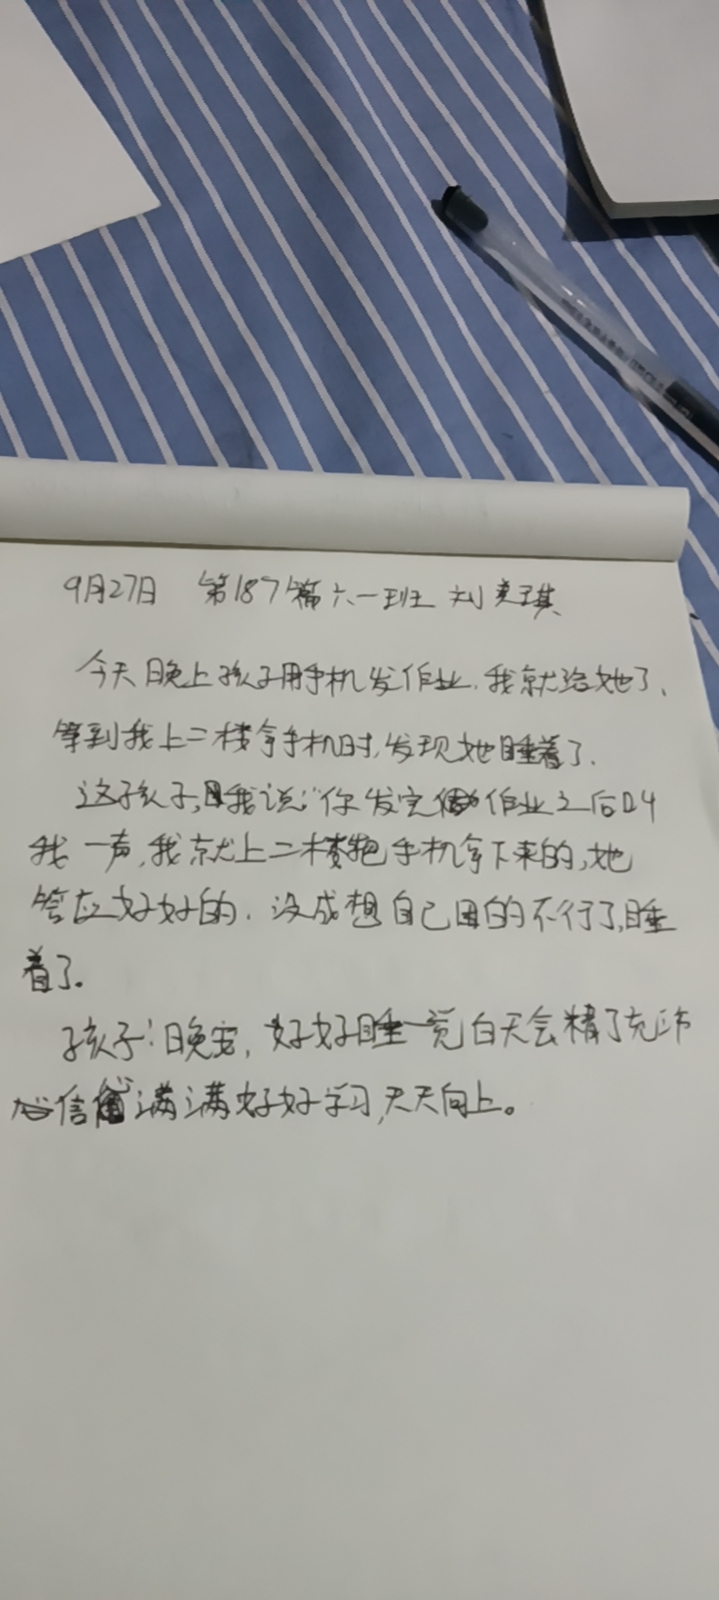 9月27日 第187篇六一班 刘 琪
今天晚上孩子用手机发作业,我就给她了、
等到我上二楼拿手机时,发现她睡着了.
这孩子,我说:"你发完作业之后叫
我一声,我就上二楼把手机拿下来的,她
答应好好的.没成想自己困的不行了,睡
着了。
孩子:晚安,好好睡一觉白天会精了充沛
心信满满好好学习,天天向上。